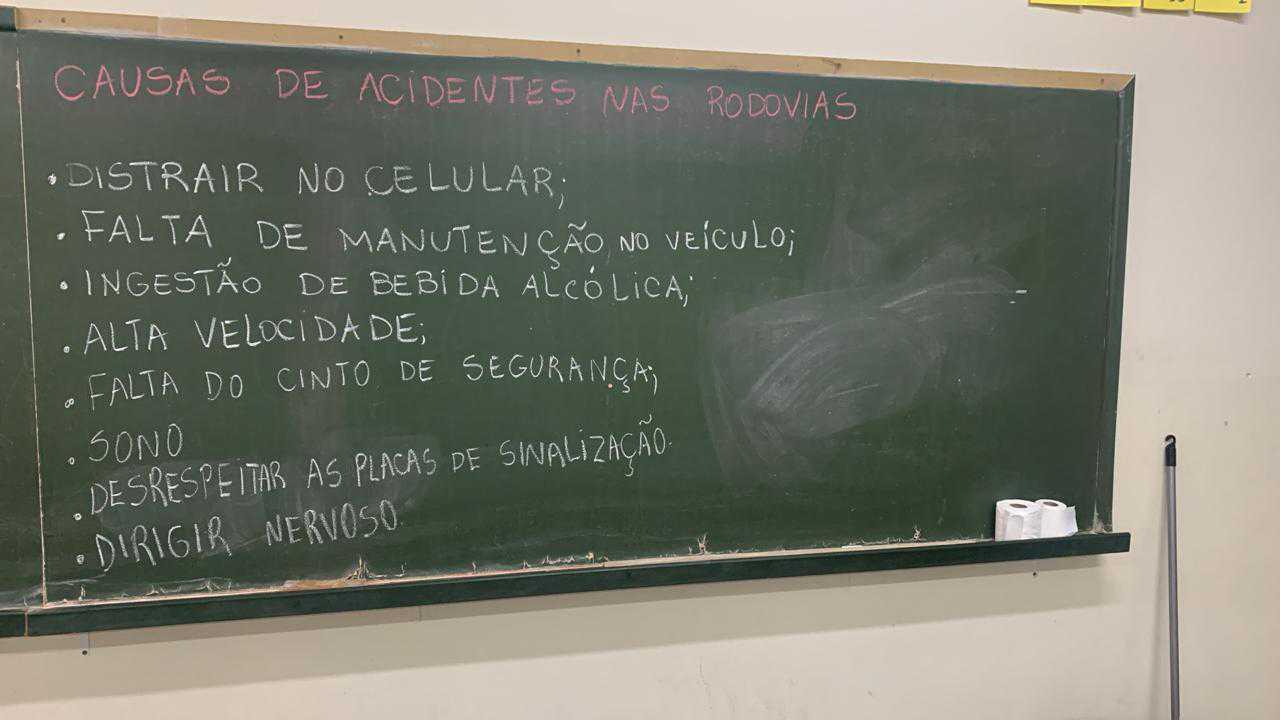 CAUSAS DE ACIDENTES NAS RODOVIAS
• DISTRAIR NO CELULAR;
• FALTA DE MANUTENÇÃO NO VEÍCULO;
• INGESTÃO DE BEBIDA ALCÓLICA;
• ALTA VELOCIDADE;
• FALTA DO CINTO DE SEGURANÇA;
• SONO
• DESRESPEITAR AS PLACAS DE SINALIZAÇÃO.
• DIRIGIR NERVOSO.